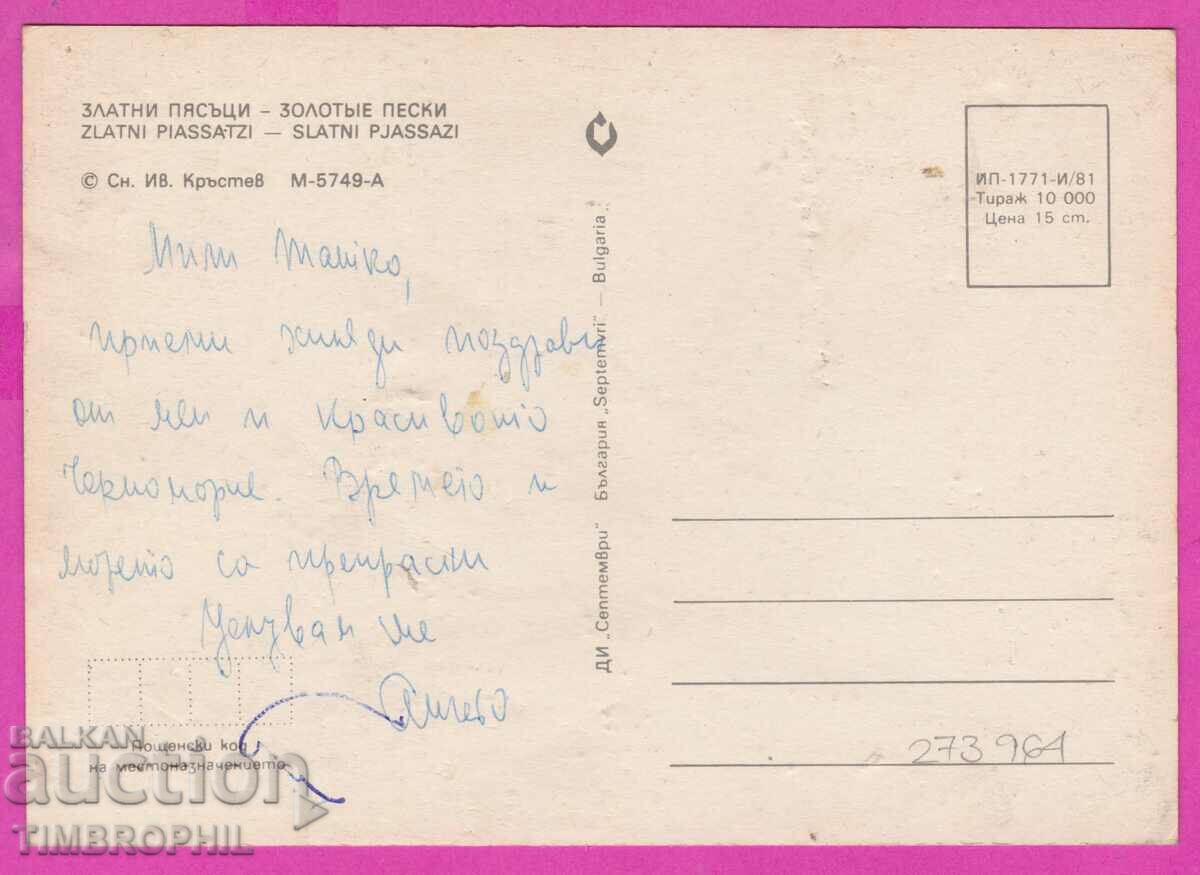 ЗЛАТНИ ПЯСЪЦИ – ЗОЛОТЫЕ ПЕСКИ
ZLATNI PIASSATZI — SLATNI PJASSAZI
© Сн. Ив. Кръстев М-5749-А
Мили Татко,
приеми хиляди поздрави
от мен и красивото
Черноморие. Времето и
морето са прекрасни
Целувам те
ДИ „Септември" България „Septemvri" — Bulgaria
ИП-1771-И/81
Тираж 10 000
Цена 15 ст.
Пощенски код
на местоназначението
273961
BALKAN
auction
TIMBROPHIL